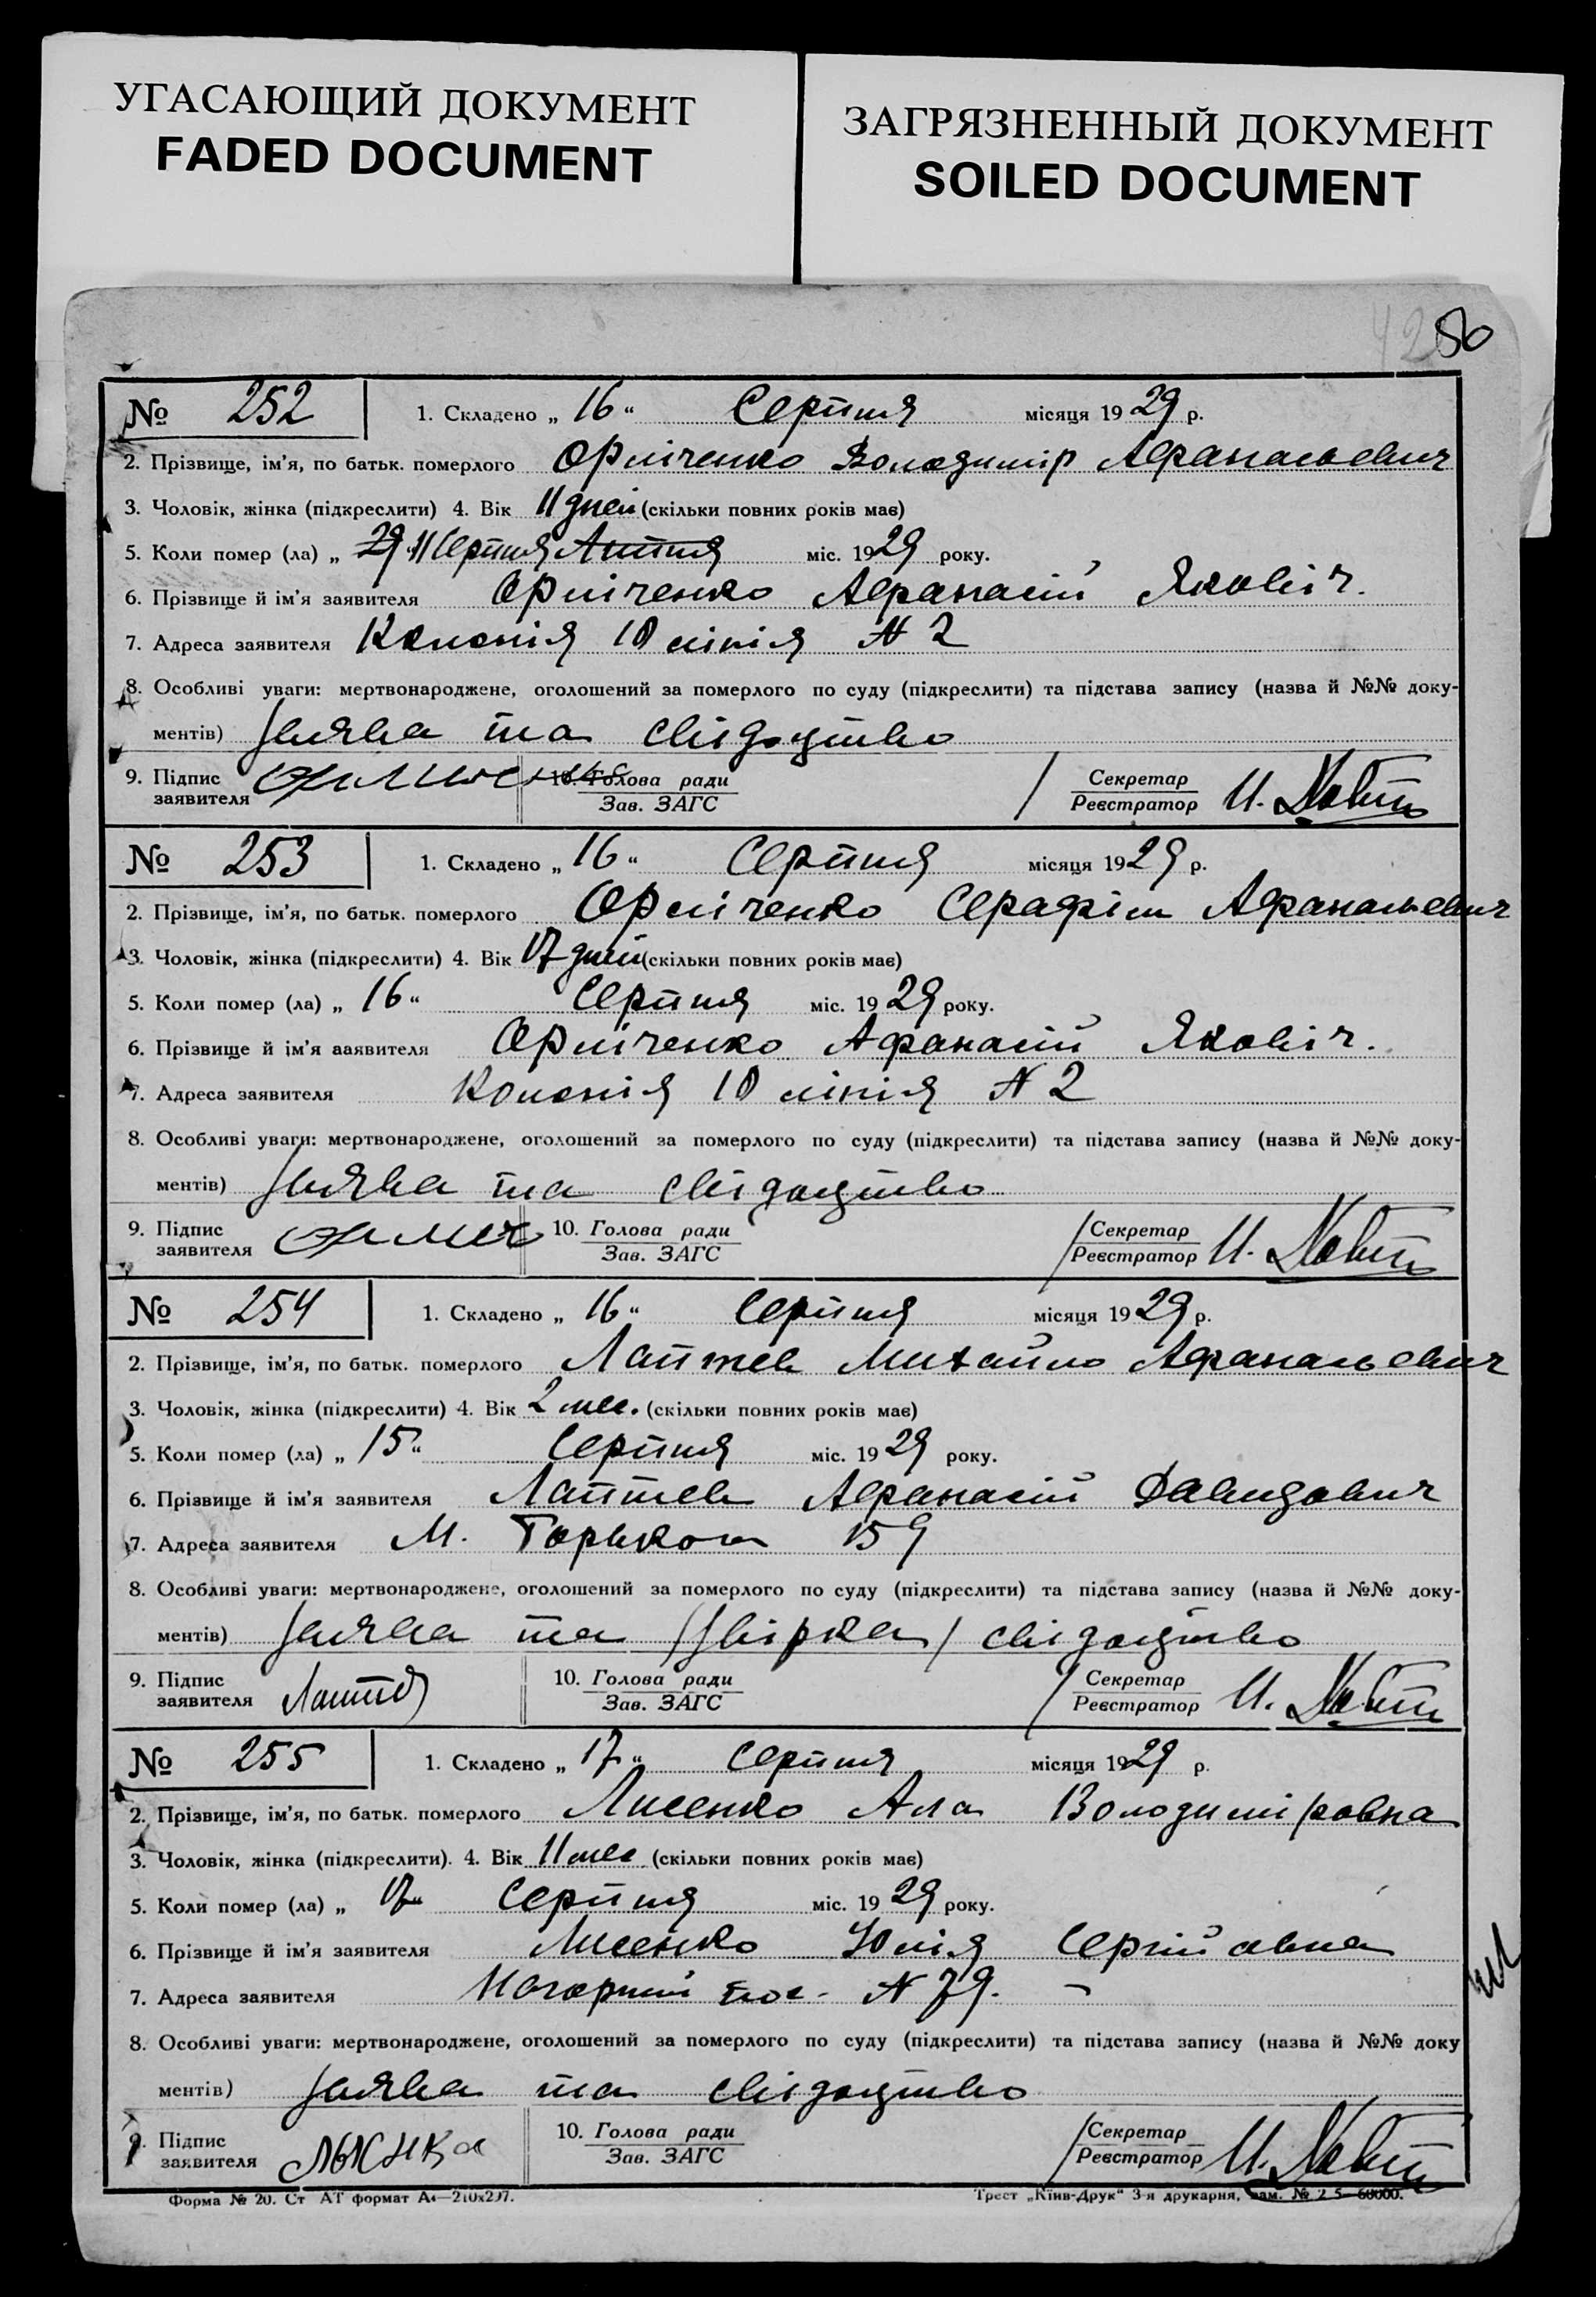 УГАСАЮЩИЙ ДОКУМЕНТ
FADED DOCUMENT
ЗАГРЯЗНЕННЫЙ ДОКУМЕНТ
SOILED DOCUMENT
42 80
№ 252 1. Складено „ 16 “ Серпня місяця 1929 р.
2. Прізвище, ім’я, по батьк. померлого Орліченко Володимір Афанасьевич
3. Чоловік, жінка (підкреслити) 4. Вік 11 дней (скільки повних років має)
5. Коли помер (ла) „ 29 11 Серпня Липня міс. 1929 року.
6. Прізвище й ім’я заявителя Орліченко Афанасій Яковіч.
7. Адреса заявителя Колонія 10 лінія N 2
8. Особливі уваги: мертвонароджене, оголошений за померлого по суду (підкреслити) та підстава запису (назва й №№ доку-
ментів) Заява та свідоцтво
9. Підпис заявителя 10. Голова ради Зав. ЗАГС Секретар Реєстратор И.
№ 253 1. Складено „ 16 “ Серпня місяця 1929 р.
2. Прізвище, ім’я, по батьк. померлого Орліченко Серафім Афанасьевич
3. Чоловік, жінка (підкреслити) 4. Вік 17 дней (скільки повних років має)
5. Коли помер (ла) „ 16 “ Серпня міс. 1929 року.
6. Прізвище й ім’я заявителя Орліченко Афанасій Яковіч.
7. Адреса заявителя Колонія 10 лінія N 2
8. Особливі уваги: мертвонароджене, оголошений за померлого по суду (підкреслити) та підстава запису (назва й №№ доку-
ментів) Заява та свідоцтво
9. Підпис заявителя 10. Голова ради Зав. ЗАГС Секретар Реєстратор И.
№ 254 1. Складено „ 16 “ Серпня місяця 1929 р.
2. Прізвище, ім’я, по батьк. померлого Лаптев Михайло Афанасьевич
3. Чоловік, жінка (підкреслити) 4. Вік 2 мес. (скільки повних років має)
5. Коли помер (ла) „ 15 “ Серпня міс. 1929 року.
6. Прізвище й ім’я заявителя Лаптев Афанасій Давидович
7. Адреса заявителя М. Горького 159
8. Особливі уваги: мертвонароджене, оголошений за померлого по суду (підкреслити) та підстава запису (назва й №№ доку-
ментів) Заява та /Звірка/ свідоцтво
9. Підпис заявителя 10. Голова ради Зав. ЗАГС Секретар Реєстратор И.
№ 255 1. Складено „ 17 “ серпня місяця 1929 р.
2. Прізвище, ім’я, по батьк. померлого Лисенко Ала Володиміровна
3. Чоловік, жінка (підкреслити). 4. Вік 11 мес (скільки повних років має)
5. Коли помер (ла) „ 17 “ Серпня міс. 1929 року.
6. Прізвище й ім’я заявителя Лисенко Юлія Сергійовна
7. Адреса заявителя Нагорний пос. N 79.
8. Особливі уваги: мертвонароджене, оголошений за померлого по суду (підкреслити) та підстава запису (назва й №№ доку
ментів) Заява та свідоцтво
9. Підпис заявителя 10. Голова ради Зав. ЗАГС Секретар Реєстратор И.
Форма № 20. Ст АТ формат А4—210х297. Трест „Київ-Друк“ 3-я друкарня, зам. № 60000.